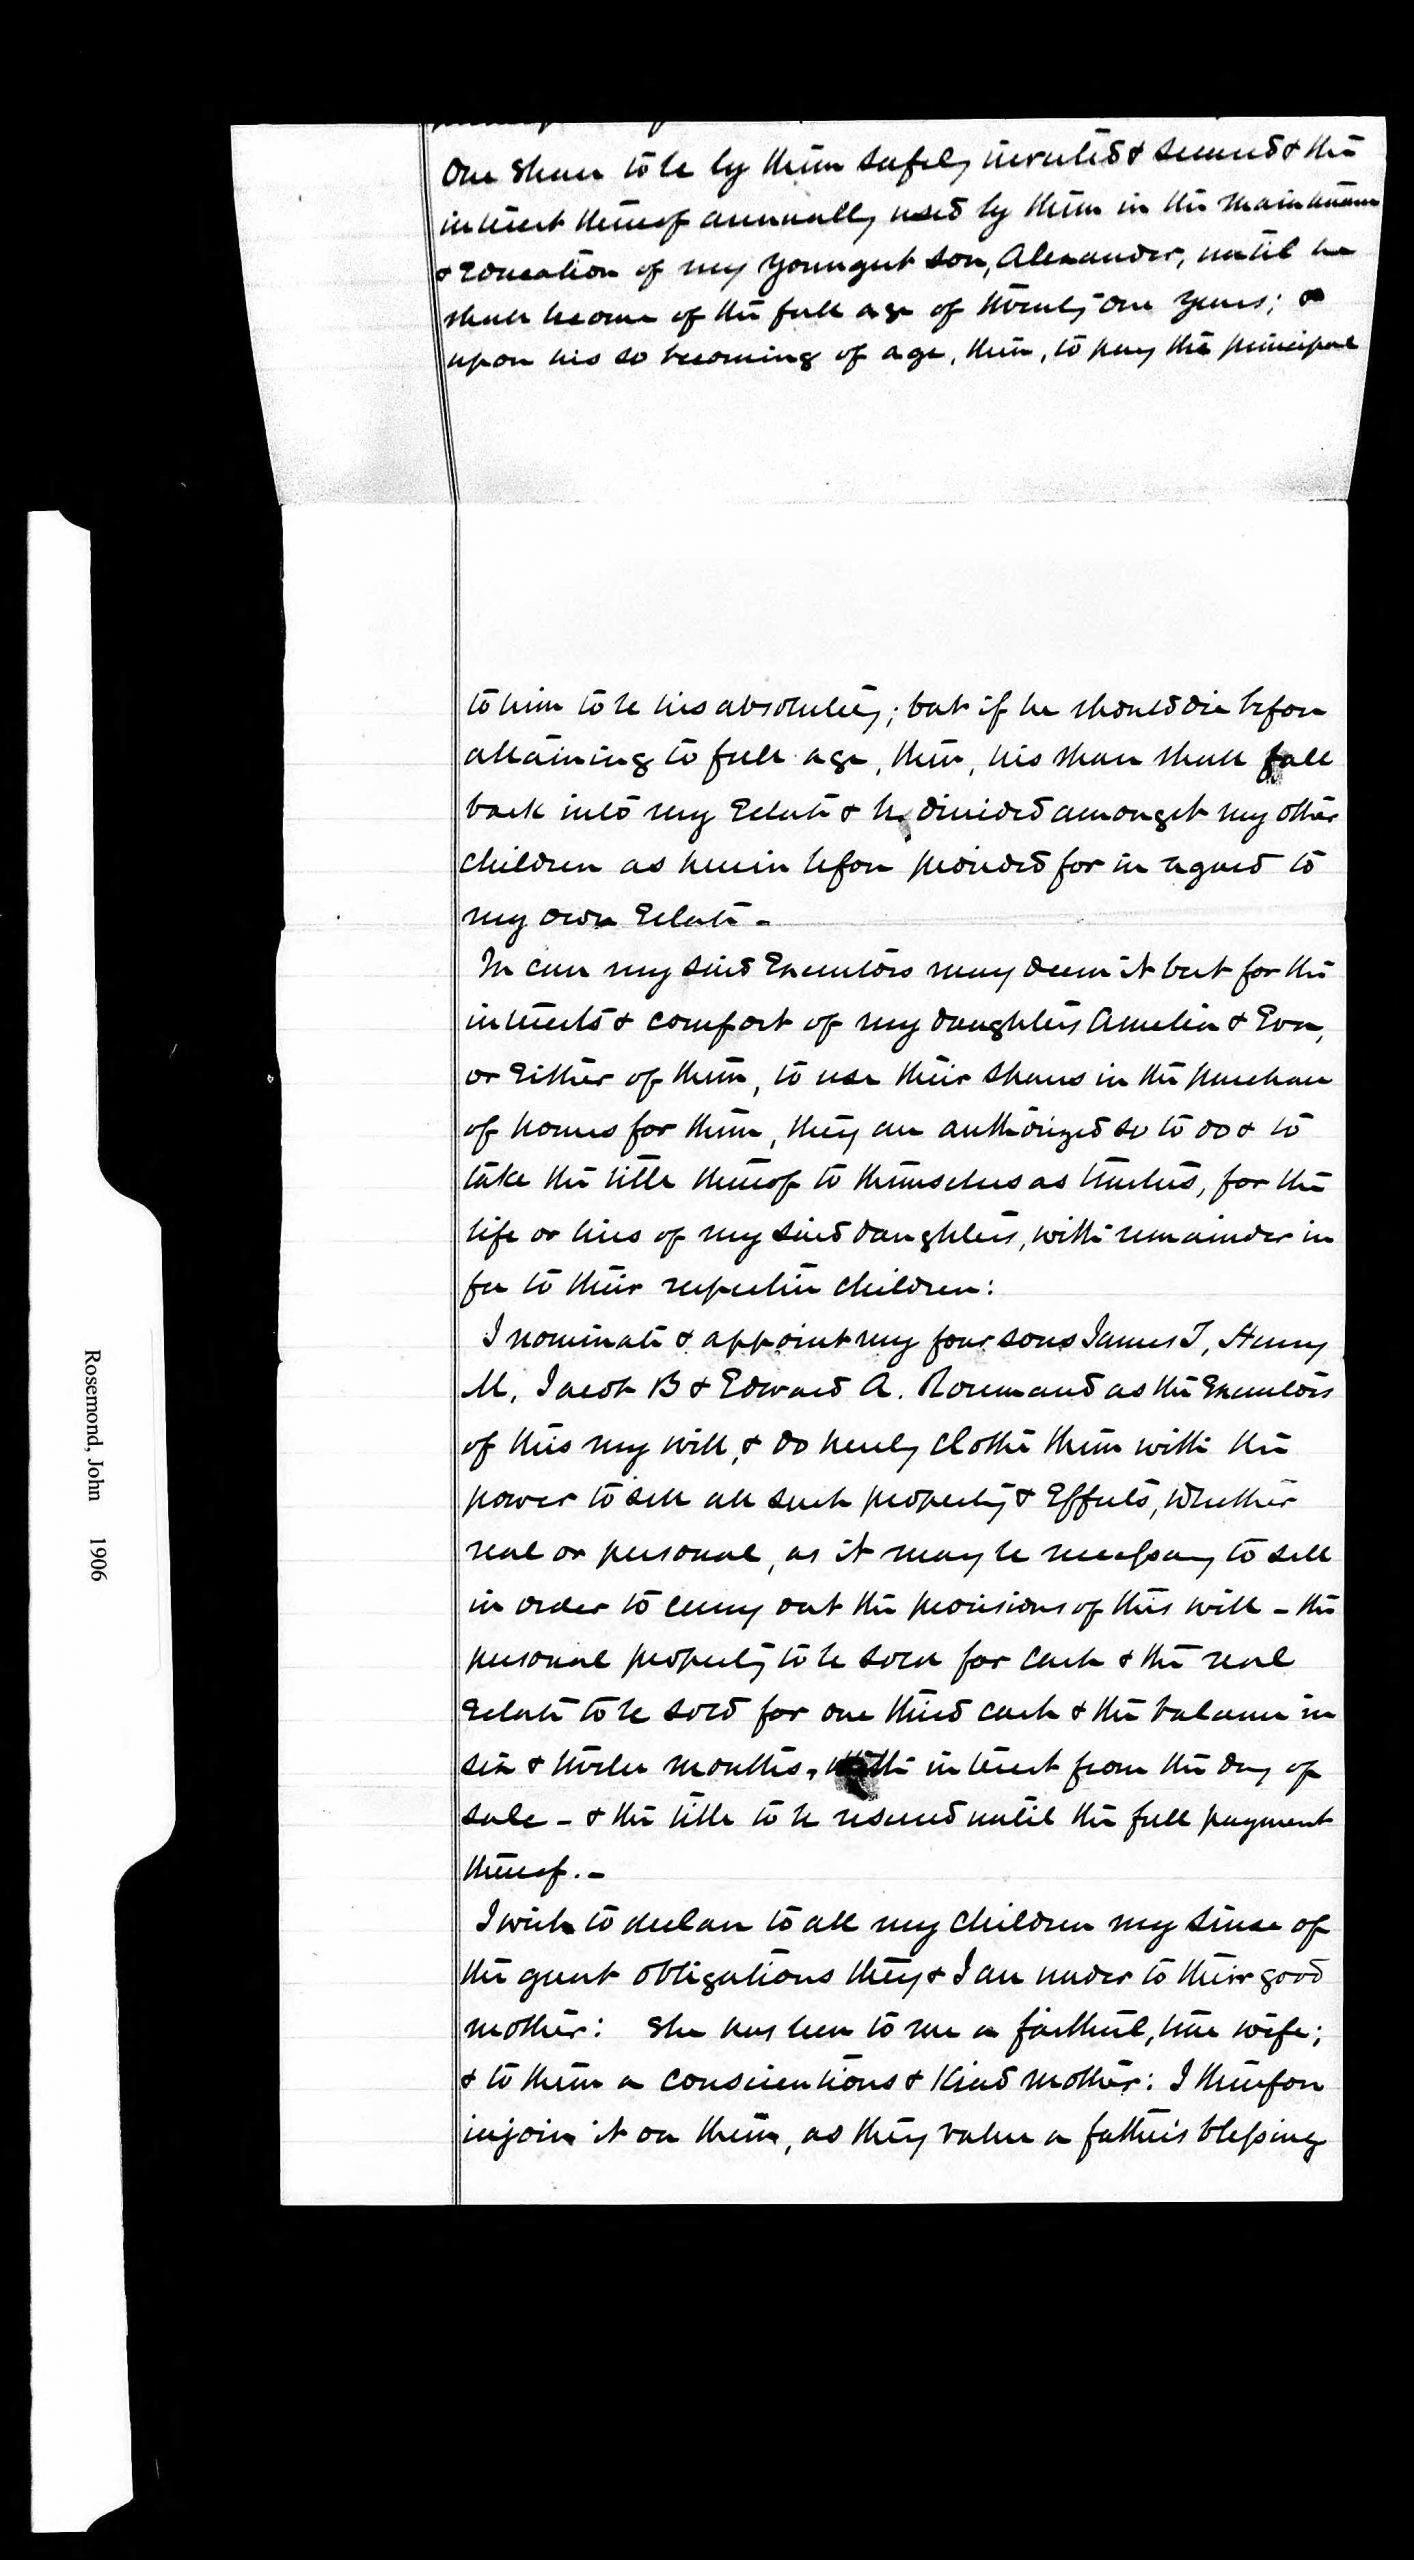 One share to be by them safely invested & secured & the
interest thereof annually used by them in the maintenance
& Education of my youngest son, Alexander, until he
shall become of the full age of twenty one years; &
upon his so becoming of age, then, to pay the principal
to him to be his absolutely; but if he should die before
attaining to full age, then, his share shall fall
back into my Estate & be divided amongst my other
children as herein before provided for in regard to
my own Estate -
In case my said Executors may deem it best for the
interests & comfort of my daughters Amelia & Eva,
or Either of them, to use their shares in the purchase
of homes for them, they are authorized so to do & to
take the title thereof to themselves as trustees, for the
life or lives of my said daughters, with remainder in
fee to their respective children:
I nominate & appoint my four sons James T, Henry
M, Jacob B & Edward A. Rosemand as the Executors
of this my will, & do hereby clothe them with the
power to sell all such property & Effects, whether
real or personal, as it may be necessary to sell
in order to carry out the provisions of this will - the
personal property to be sold for cash & the real
Estate to be sold for one third cash & the balance in
six & twelve months, with interest from the day of
sale - & the title to be reserved until the full payment
thereof. -
I wish to declare to all my children my sense of
the great obligations they & I are under to their good
mother: She has been to me a faithful, true wife;
& to them a conscientious & kind mother: I therefore
injoin it on them, as they value a father's blessing
Rosemond, John 1906